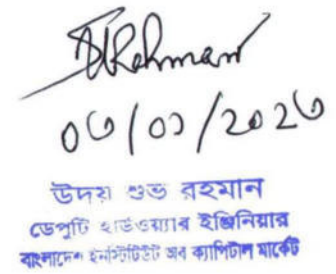 ০৩/০১/২০২৩
উদয় শুভ রহমান
ডেপুটি হার্ডওয়্যার ইঞ্জিনিয়ার
বাংলাদেশ ইনস্টিটিউট অব ক্যাপিটাল মার্কেট